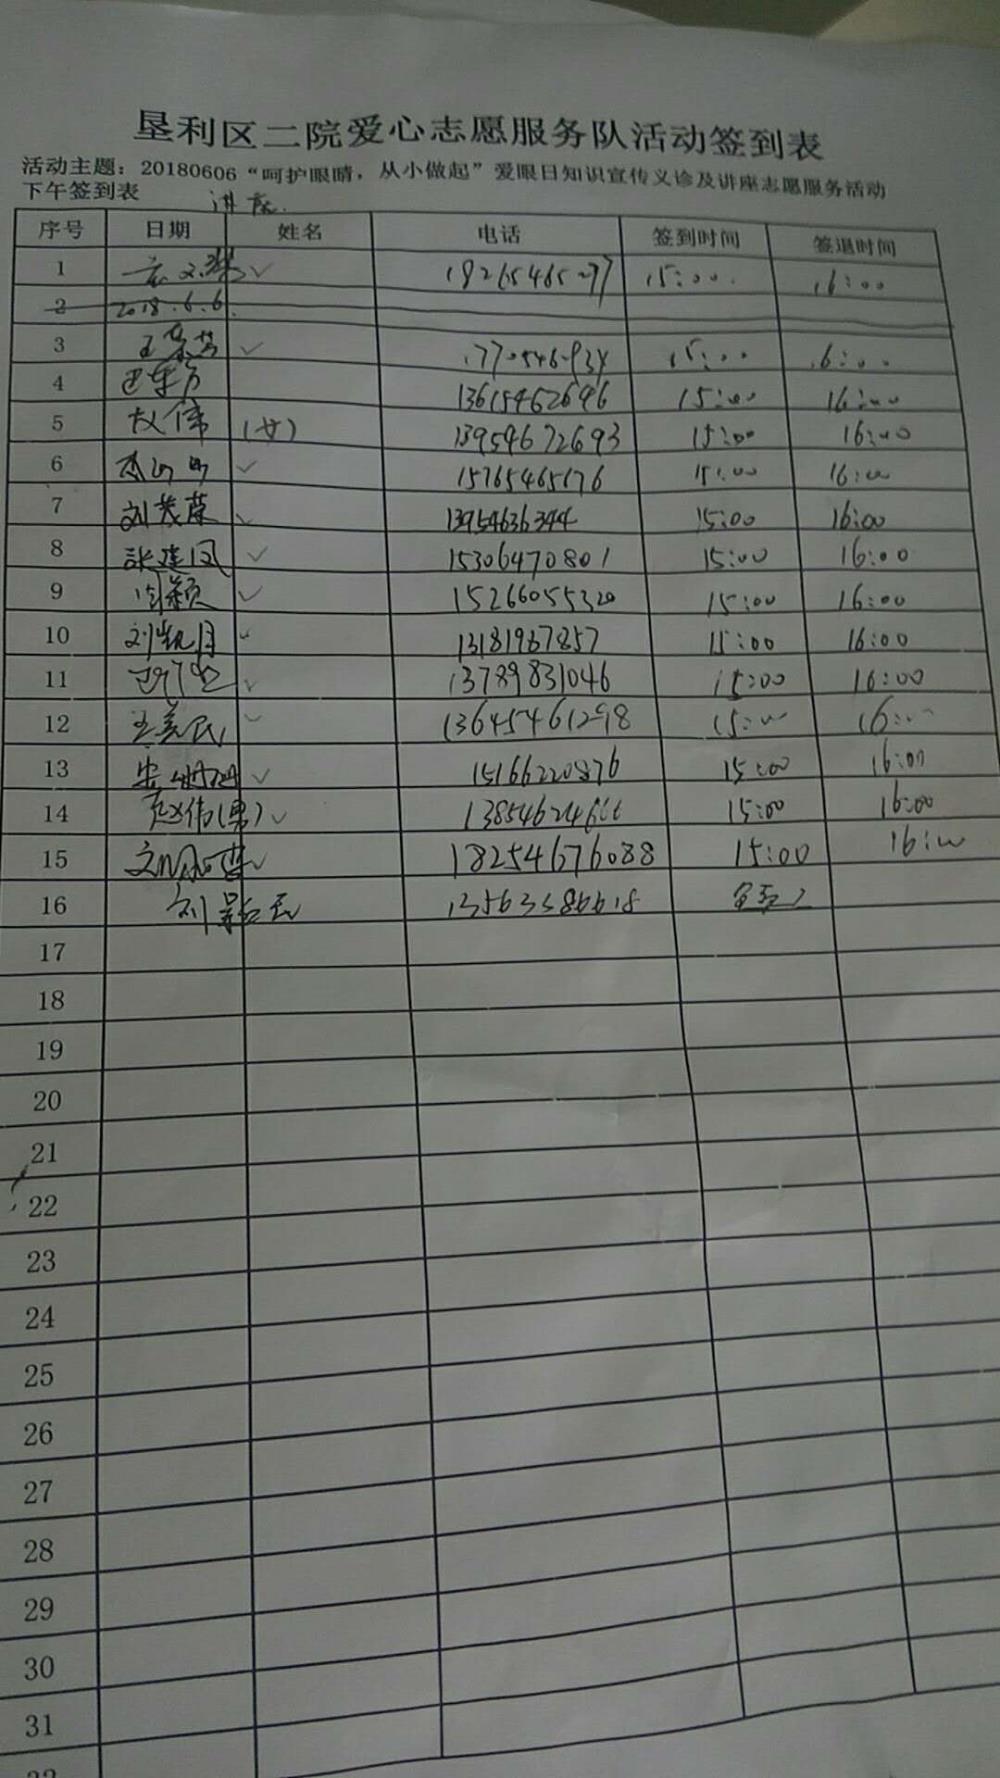 垦利区二院爱心志愿服务队活动签到表
活动主题：20180606“呵护眼睛，从小做起”爱眼日知识宣传义诊及讲座志愿服务活动
下午签到表 讲座.
序号 日期 姓名 电话 签到时间 签退时间
1 15:00. 16:00
2 2018.6.6.
3 15:00 16:00
4 13615462696 15:00 16:00
5 伟 (女) 13954672693 15:00 16:00
6 15765465176 15:00 16:00
7 刘茂荣 13954636344 15:00 16:00
8 张建凤 15306470801 15:00 16:00
9 周颖 15266055320 15:00 16:00
10 刘凯月 13181987857 15:00 16:00
11 13789831046 15:00 16:00
12 王美民 13645461298 15:00 16:00
13 15166220876 15:00 16:00
14 赵伟(男) 13854624666 15:00 16:00
15 18254676088 15:00 16:00
16 刘 13563386618
17
18
19
20
21
22
23
24
25
26
27
28
29
30
31